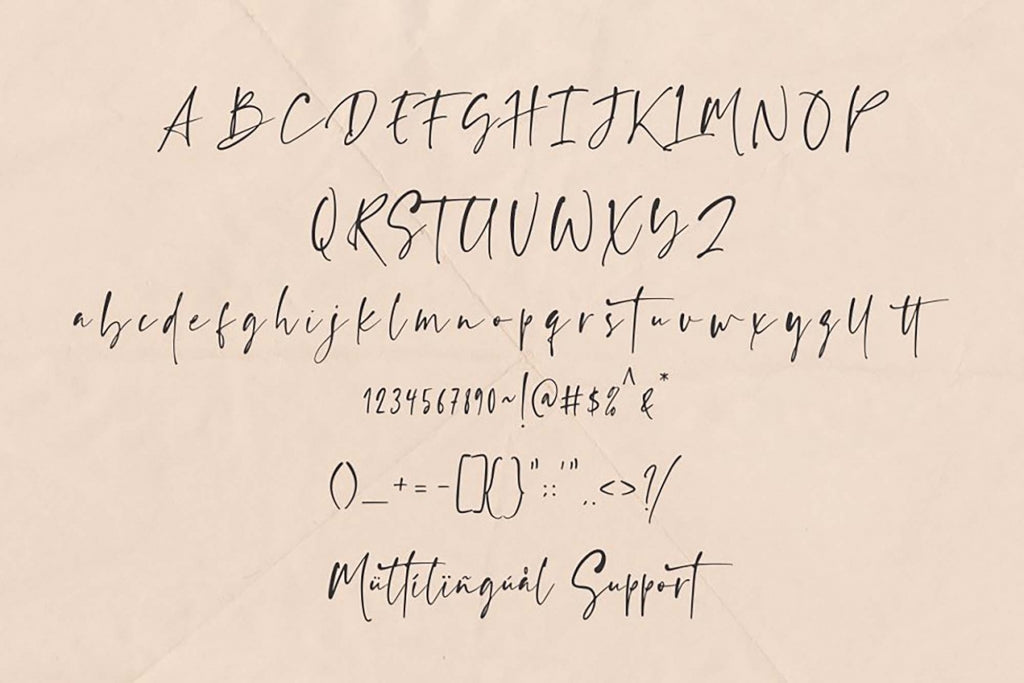 A B C D E F G H I J K L M N O P
Q R S T U V W X Y Z
a b c d e f g h i j k l m n o p q r s t u v w x y z ll tt
1 2 3 4 5 6 7 8 9 0 ~ ! @ # $ % ^ & *
( ) _ + = - [ ] { } " : ; ' " , . < > ? /
Müttílïñgúål Support